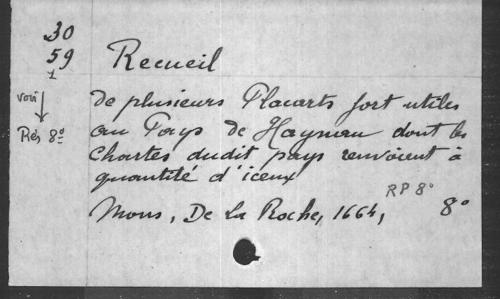 30
59
1
Recueil
voir
Rés 8º
de plusieurs Placarts fort utiles
au Pays de Haynau dont les
Chartes dudit pays renvoient à
quantité d'iceux
RP 8º
Mons, De La Roche, 1664, 8º